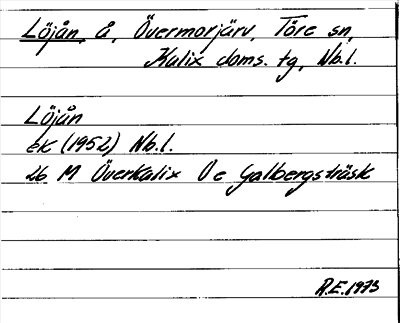 Löjån, å, Övermorjärv, Töre sn,
Kalix doms. tg, Nb.l.
Löjån
ek (1952) Nb.l.
26 M Överkalix Ö e Galbergsträsk
R.E. 1973